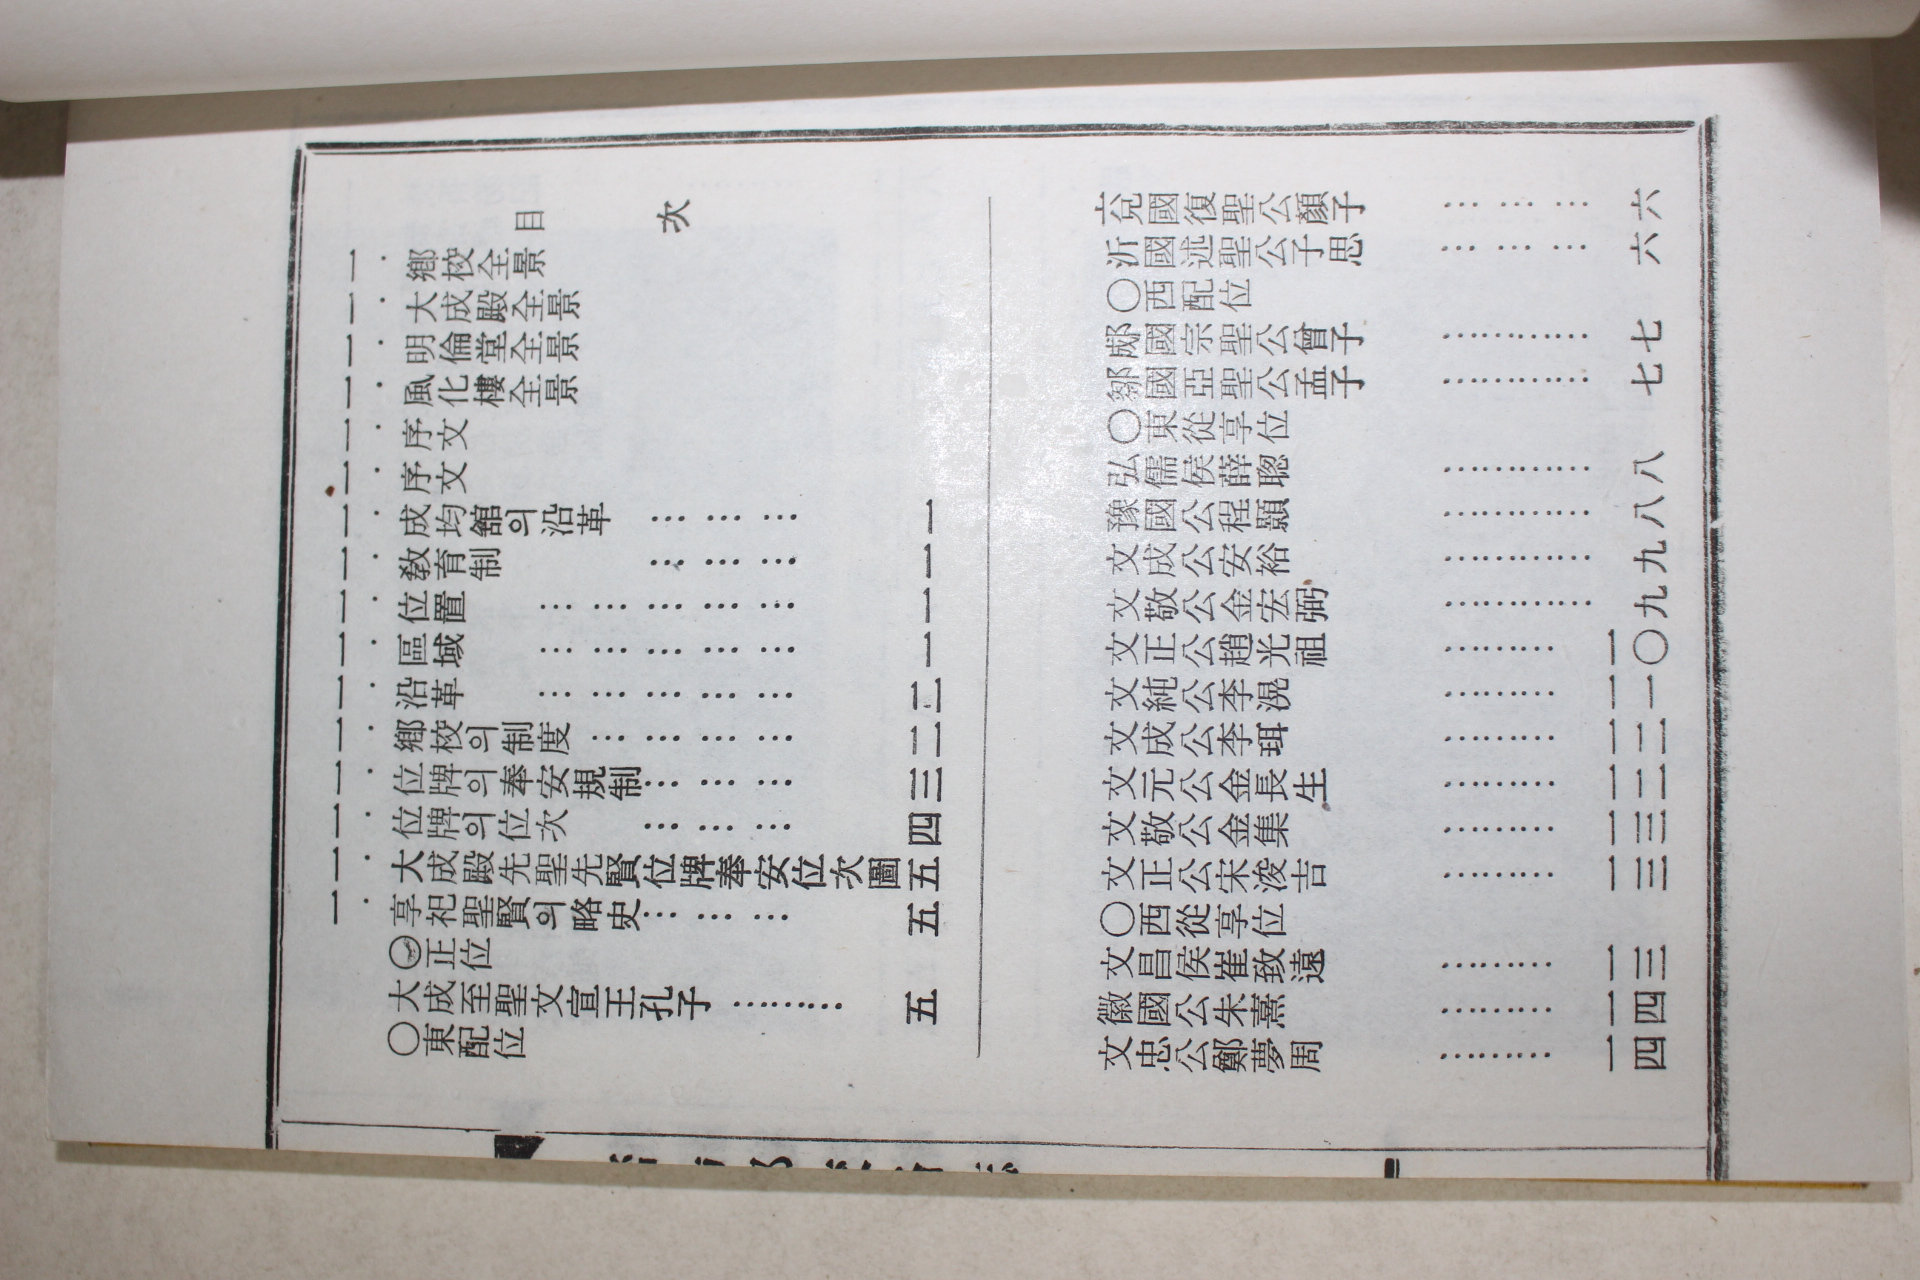 目次
一. 鄕校全景
一. 大成殿全景
一. 明倫堂全景
一. 風化樓全景
一. 序文
一. 序文
一. 成均舘의沿革………一
一. 敎育制………一
一. 位置……………一
一. 區域……………一
一. 沿革……………二
一. 鄕校의制度…………二
一. 位牌의奉安規制………三
一. 位牌의位次………四
一. 大成殿先聖先賢位牌奉安位次圖五
一. 享祀聖賢의略史………五
○正位
大成至聖文宣王孔子………五
○東配位
兗國復聖公顏子………六
沂國述聖公子思………六
○西配位
郕國宗聖公曾子………七
鄒國亞聖公孟子………七
○東從享位
弘儒侯薛聰………八
豫國公程顥………八
文成公安裕………九
文敬公金宏弼………九
文正公趙光祖………一〇
文純公李滉………一一
文成公李珥………一二
文元公金長生………一二
文敬公金集………一三
文正公宋浚吉………一三
○西從享位
文昌侯崔致遠………一三
徽國公朱熹………一四
文忠公鄭夢周………一四